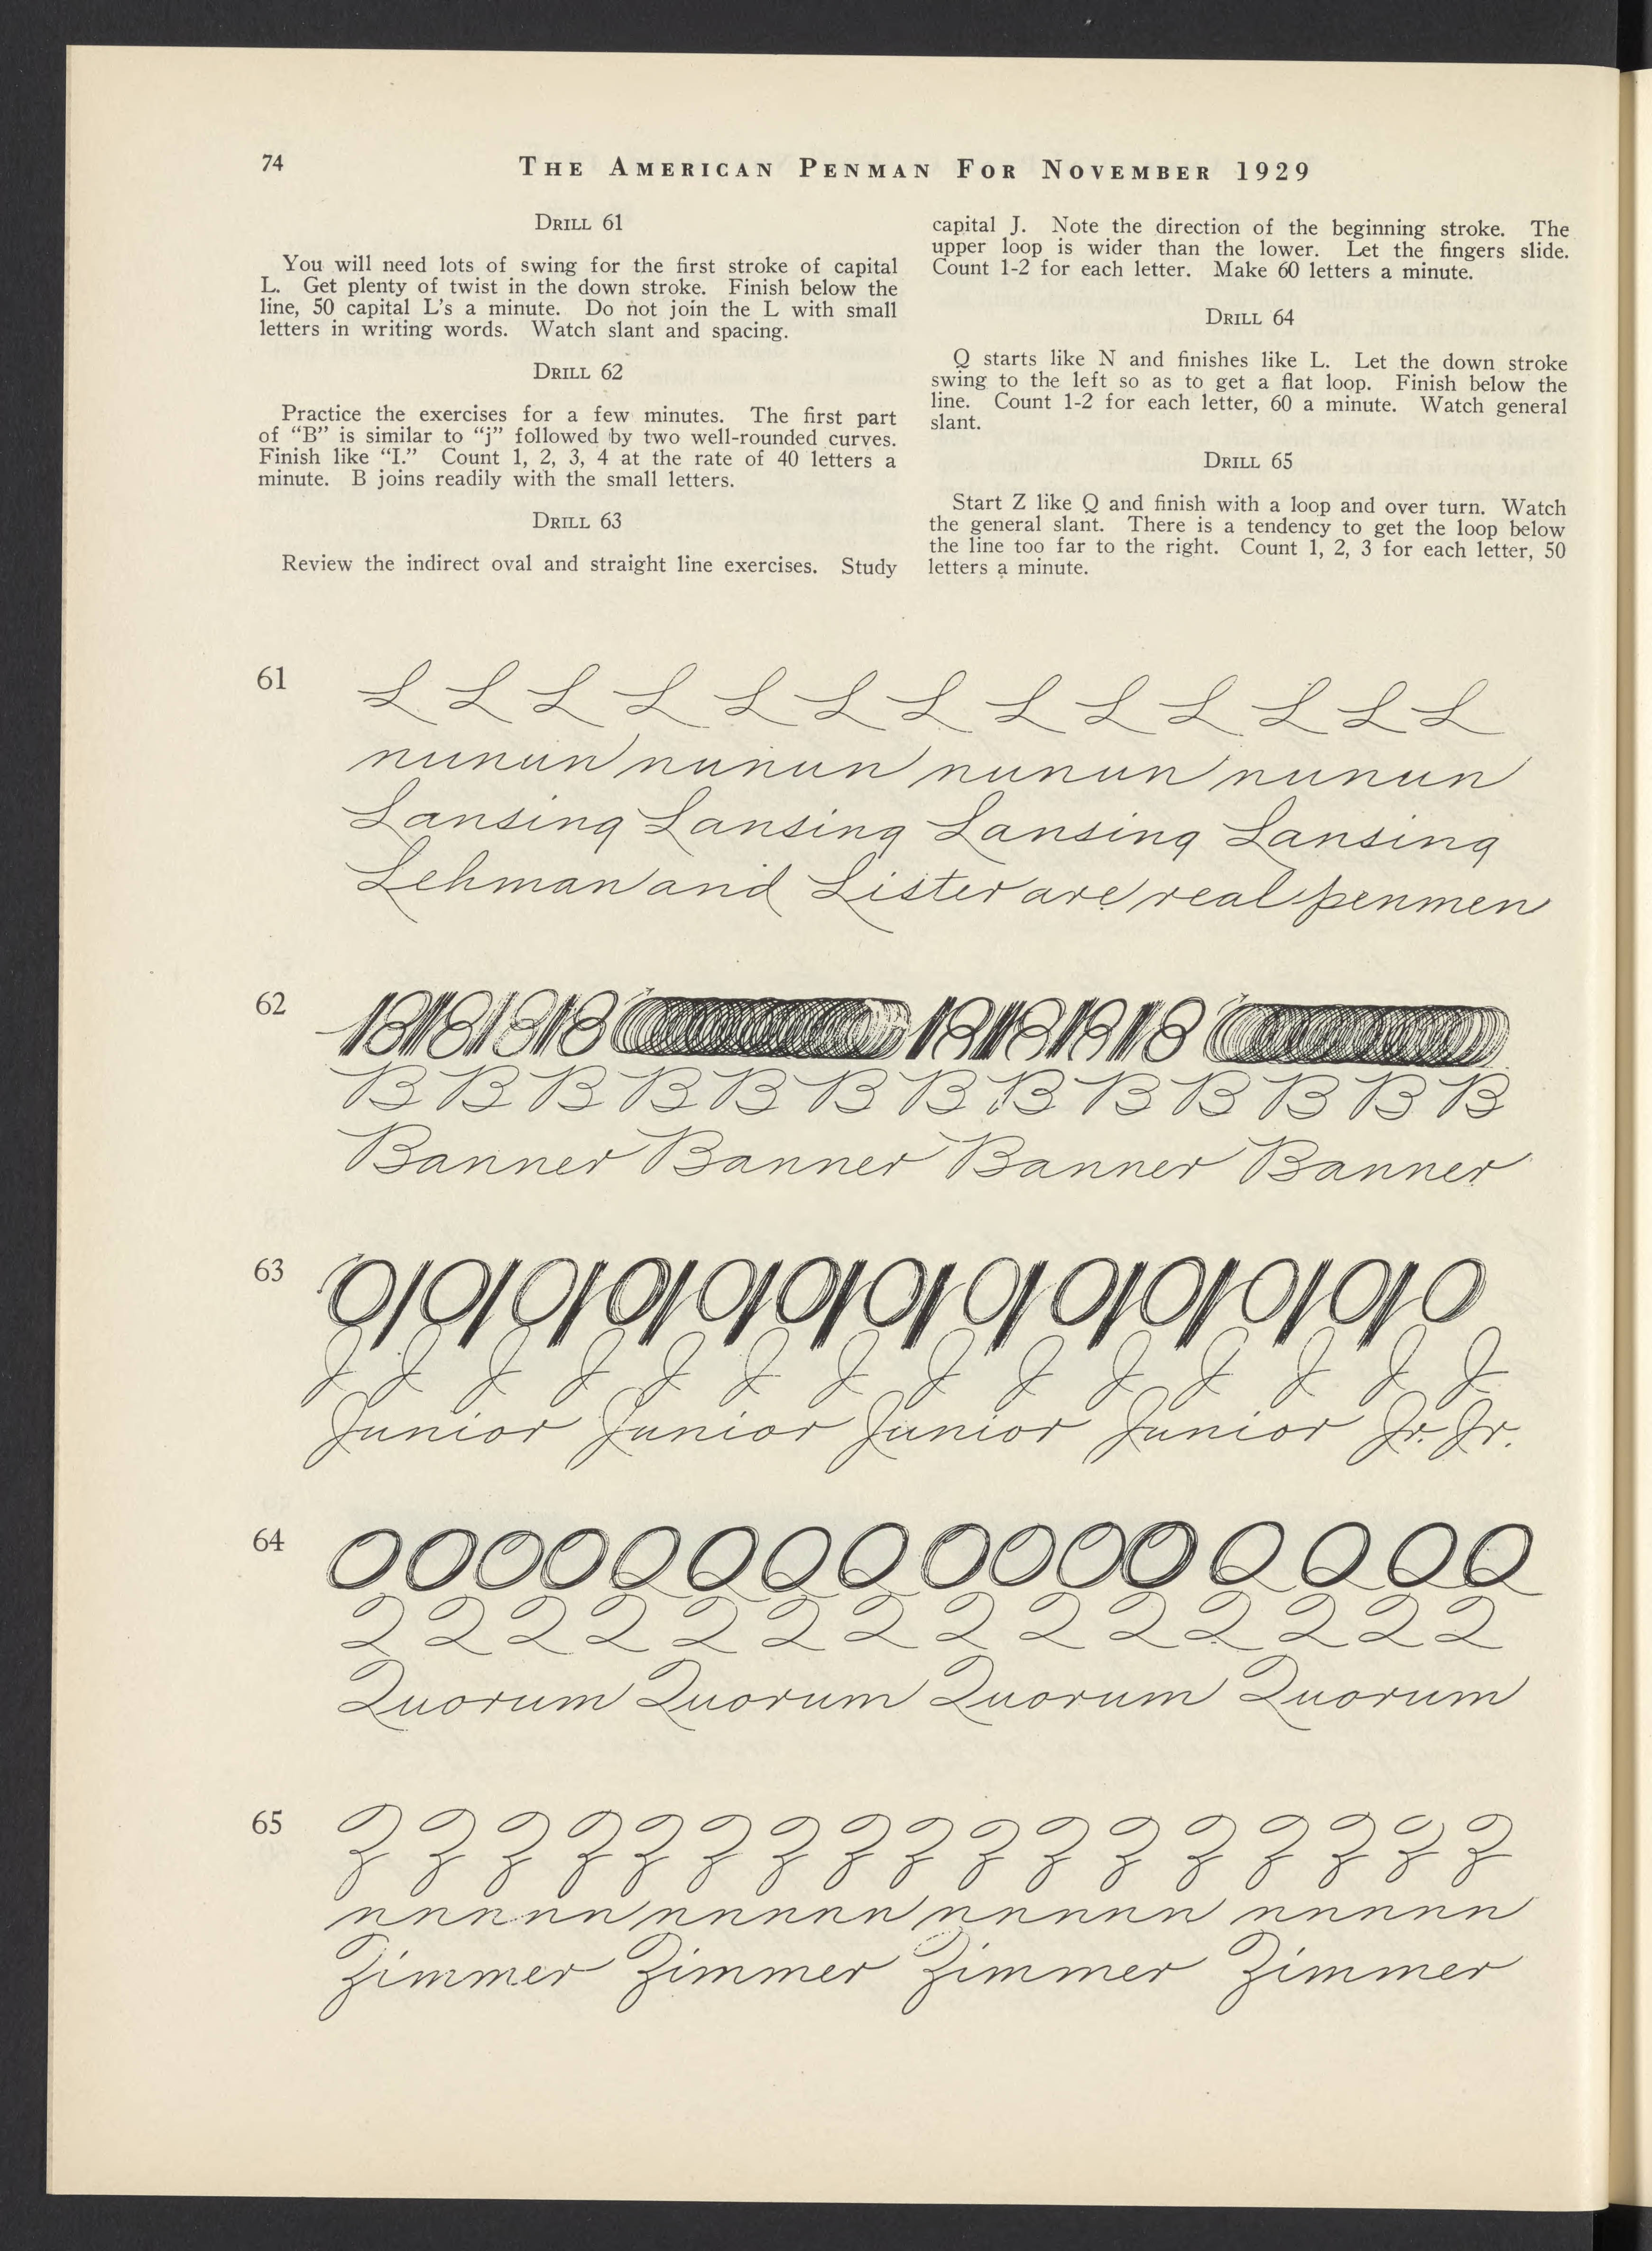 74
THE AMERICAN PENMAN FOR NOVEMBER 1929
DRILL 61
You will need lots of swing for the first stroke of capital
L. Get plenty of twist in the down stroke. Finish below the
line, 50 capital L's a minute. Do not join the L with small
letters in writing words. Watch slant and spacing.
DRILL 62
Practice the exercises for a few minutes. The first part
of “B” is similar to “j” followed by two well-rounded curves.
Finish like “I.” Count 1, 2, 3, 4 at the rate of 40 letters a
minute. B joins readily with the small letters.
DRILL 63
Review the indirect oval and straight line exercises. Study
capital J. Note the direction of the beginning stroke. The
upper loop is wider than the lower. Let the fingers slide.
Count 1-2 for each letter. Make 60 letters a minute.
DRILL 64
Q starts like N and finishes like L. Let the down stroke
swing to the left so as to get a flat loop. Finish below the
line. Count 1-2 for each letter, 60 a minute. Watch general
slant.
DRILL 65
Start Z like Q and finish with a loop and over turn. Watch
the general slant. There is a tendency to get the loop below
the line too far to the right. Count 1, 2, 3 for each letter, 50
letters a minute.
61
L L L L L L L L L L L L L
nunun nunun nunun nunun
Lansing Lansing Lansing Lansing
Lehman and Lister are real penmen
62
B B B B B B B B B B B B B
Banner Banner Banner Banner
63
J J J J J J J J J J J J J J
Junior Junior Junior Junior Jr. Jr.
64
Q Q Q Q Q Q Q Q Q Q Q Q Q Q
Quorum Quorum Quorum Quorum
65
Z Z Z Z Z Z Z Z Z Z Z Z Z Z Z Z Z
nnnnn nnnnn nnnnn nnnnn
Zimmer Zimmer Zimmer Zimmer